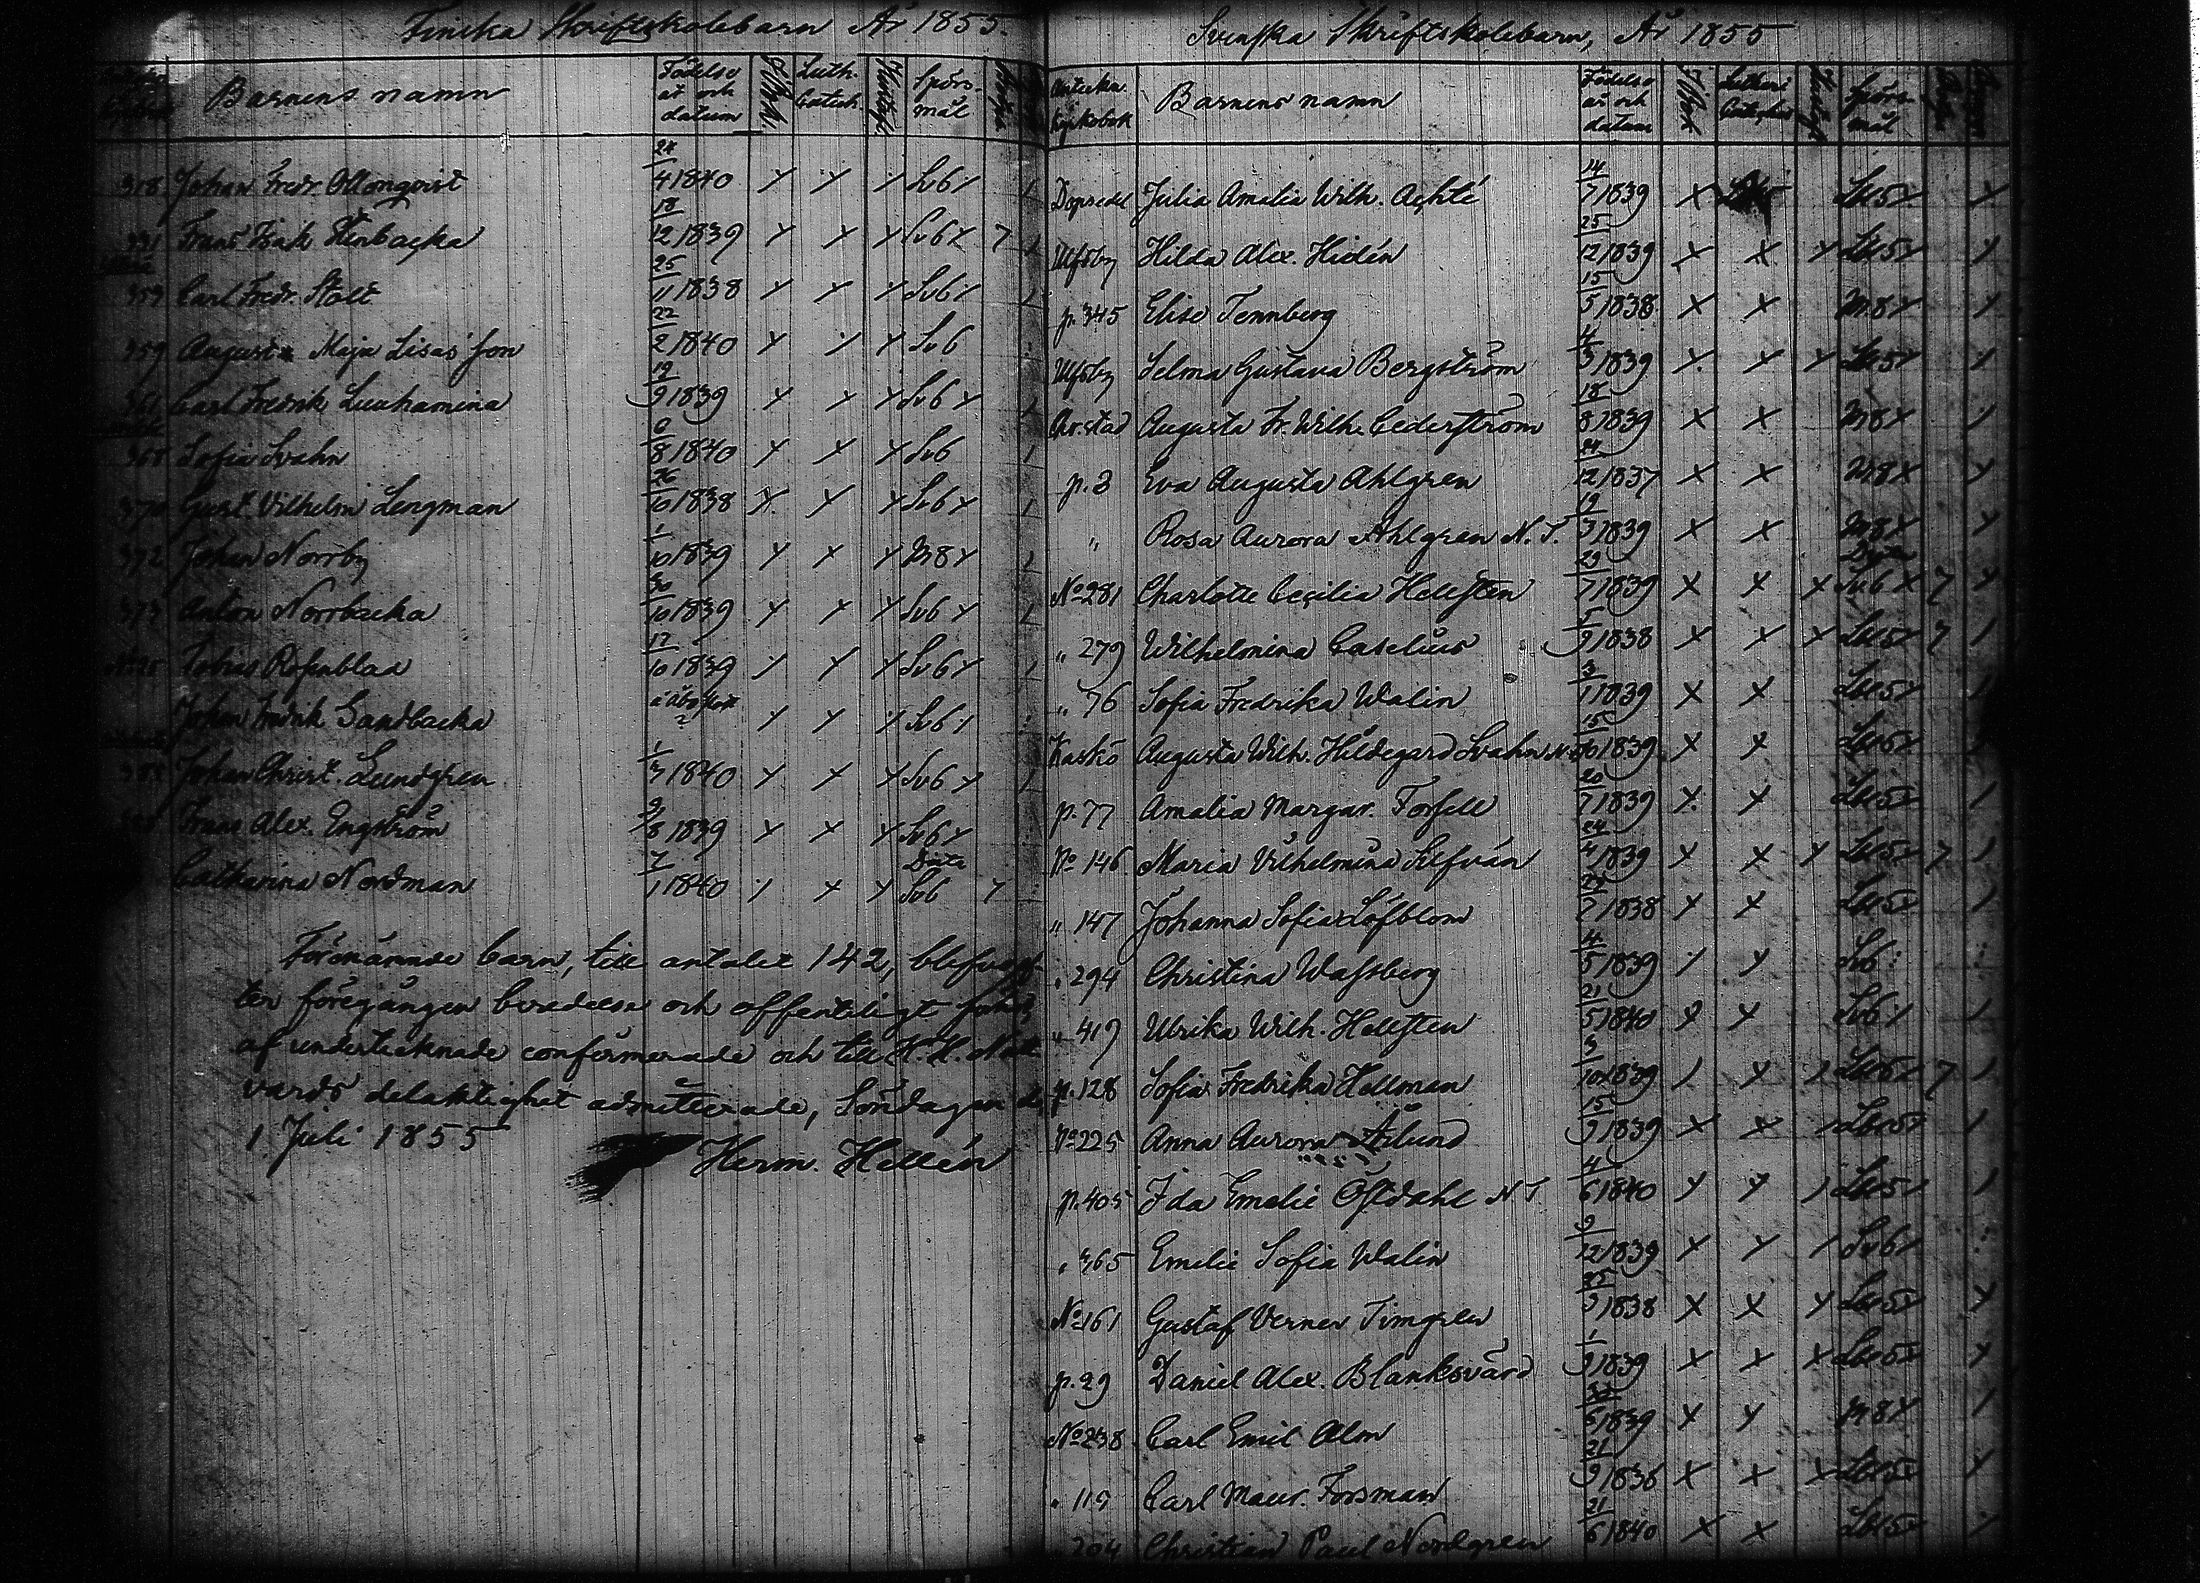 Finska Skriftskolebarn År 1855.
Barnens namn Födelse år och datum Luth. Catech. Spörsmål
318 Johan Fredr. Ollonqvist 24/4 1840 Sv6
331 Frans Isak Stenbacka 18/12 1839 Sv6 7
Carl Fredr. Stolt 25/11 1838 Sv6
359 August Maja Lisas' son 22/2 1840 Sv6
361 Carl Fredrik Luuhamina 19/9 1839 Sv6
368 Sofia Svahn 8 1840 Sv6
370 Gust. Vilhelm Lengman 26/10 1838 Sv6
372 Johan Norrby 1/10 1839 M8
373 Anton Norrbacka 30/10 1839 Sv6
Tobias Rosenblad 17/10 1839 Sv6
Johan Fredrik Sandbacka ? Sv6
388 Johan Christ. Lundgren 1/3 1840 Sv6
Frans Alex. Engström 9/8 1839 Sv6
Catharina Nordman 7/1 1840 Sv6
Förenämnde barn, till antalet 142, blefvo
ter föregången beredelse och offentligt
af undertecknade confirmerade och till H. H. Natt
vards delaktighet admitterade, Söndagen d.
1 Juli 1855
Herm. Hellén
Svenska Skriftskolebarn, År 1855
Kyrkobok Barnens namn Födelse år och datum Lutheri Spörsmål
Julia Amalia Wilh. Achté 14/7 1839 Lbr5
Ulfsby Hilda Alex. Hidén 25/12 1839 Lbr5
p. 345 Elise Tennberg 15/5 1838 M8
Ulfsby Selma Gustava Bergström 4/3 1839 Lbr5
Chr.stad Augusta Fr. Wilh. Cederström 18/8 1839 M8
p. 3 Eva Augusta Ahlgren 24/12 1837 M8
" Rosa Aurora Ahlgren N. T. 19/3 1839 M8
No 281 Charlotte Cecilia Hellsten 29/7 1839 Sv6 7
" 279 Wilhelmina Caselius 5/9 1838 Lbr5 7
" 76 Sofia Fredrika Walin 3/1 1839 Lbr5
Kaskö Augusta Wilh. Hildegard Svahn 15/10 1839
p. 77 Amalia Margar. Forsell 20/7 1839 Lbr5
No 146 Maria Vilhelmina Selfván 24/4 1839 Lbr5 7
" 147 Johanna Sofia Löfblom 1838 Lbr5
" 294 Christina Wassberg 4/5 1839 Sv6
" 419 Ulrika Wilh. Hellsten 21/5 1840 Sv6
p. 128 Sofia Fredrika Hellman 9/10 1839 7
No 225 Anna Aurora Åslund 15/9 1839 Lbr5
p. 405 Ida Emelie Östdahl N T 4/6 1840 Lbr5
" 365 Emelie Sofia Walin 9/12 1839 Sv6
No 161 Gustaf Verner Timgren 25/3 1838 Lbr5
p. 29 Daniel Alex. Blanksvärd 1/9 1839 Lbr5
No 238 Carl Emil Alm 1839 M8
" 115 Carl Maur. Forsman 21/9 1836 Lbr5
204 Christian Paul Nordgren 21/6 1840 Lbr5